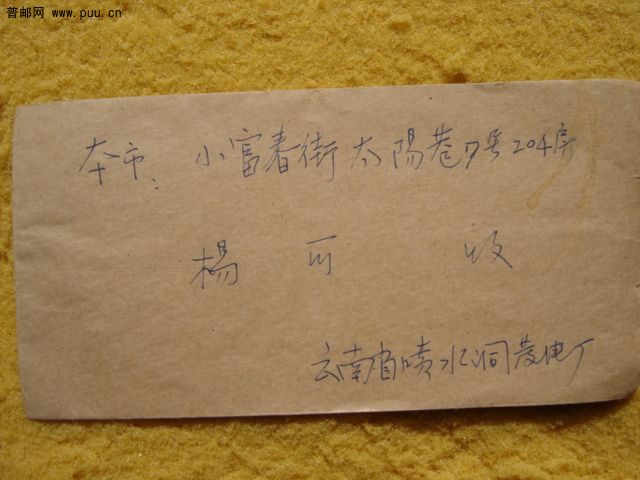 普邮网 www.puu.cn
本市: 小富春街太陽巷7号204房
楊可 收
云南省喷水洞发电厂